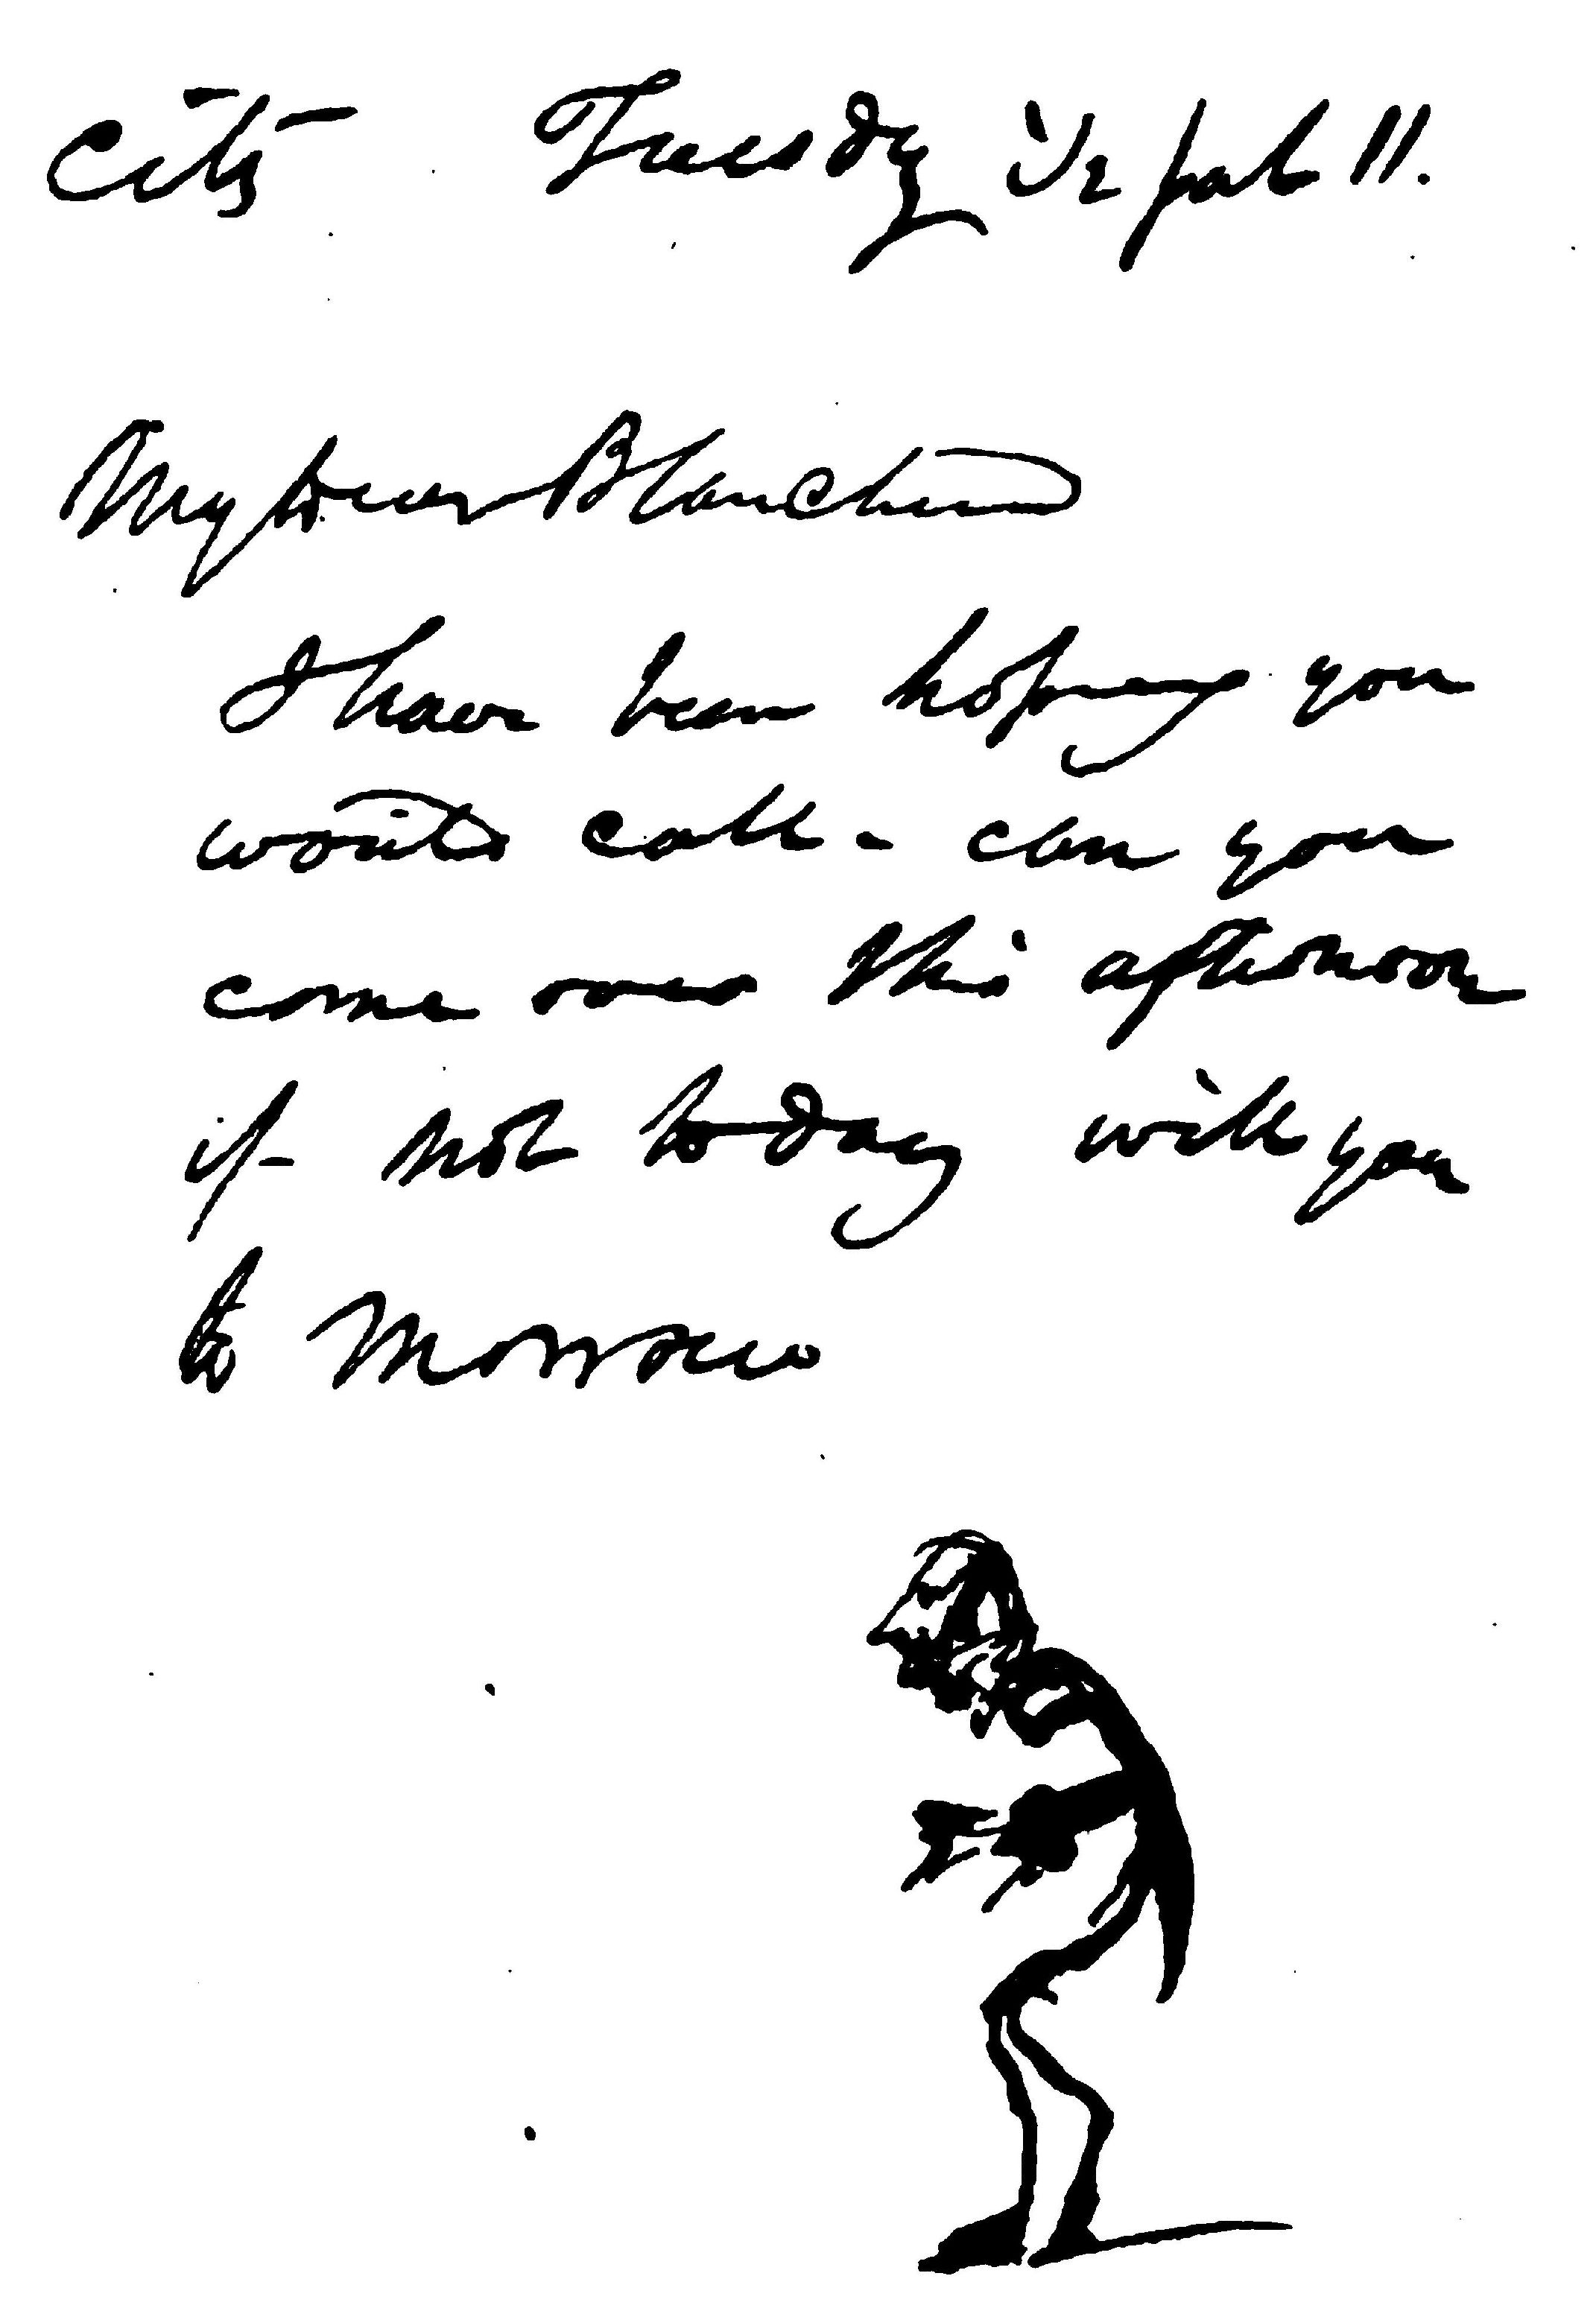 City Tuesdy ½ past 11.
My dear Blanchard
I have been hoping you
would call - can you
come over this afternoon
if not to day will you
to morrow